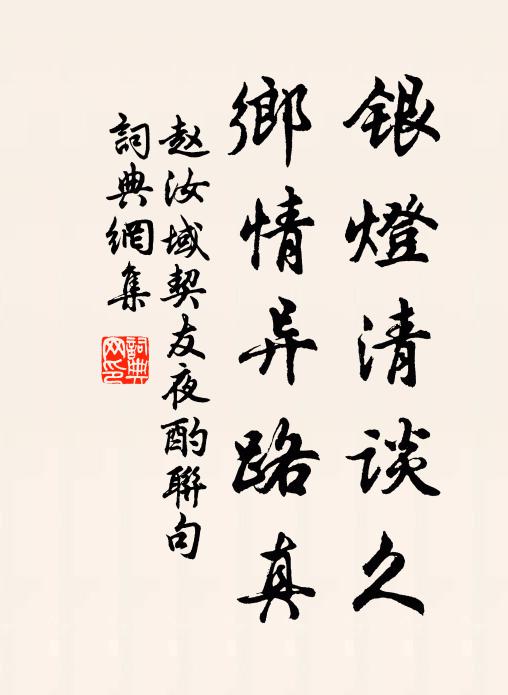 银燈清谈久
鄉情异路真
赵汝域契友夜酌聯句
詞典網集
詞典网印